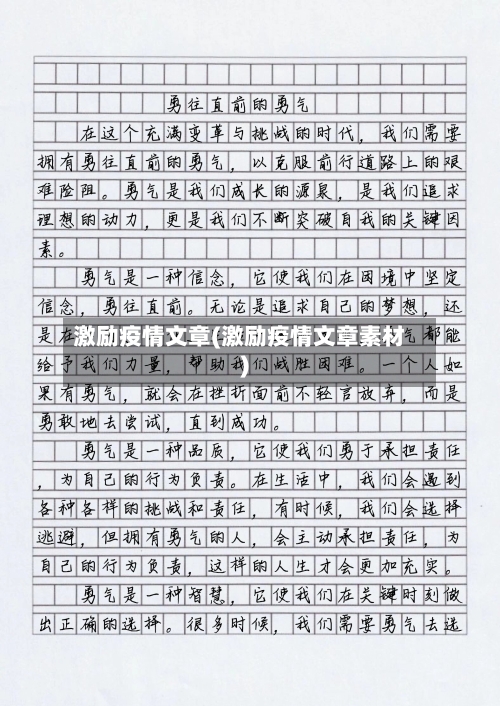 勇往直前的勇气
在这个充满变革与挑战的时代，我们需要
拥有勇往直前的勇气，以克服前行道路上的艰
难险阻。勇气是我们成长的源泉，是我们追求
理想的动力，更是我们不断突破自我的关键因
素。
勇气是一种信念，它使我们在困境中坚定
信念，勇往直前。无论是追求自己的梦想，还
是在
激励疫情文章(激励疫情文章素材
)
气都能
给予我们力量，帮助我们战胜困难。一个人如
果有勇气，就会在挫折面前不轻言放弃，而是
勇敢地去尝试，直到成功。
勇气是一种品质，它使我们勇于承担责任
，为自己的行为负责。在生活中，我们会遇到
各种各样的挑战和责任，有时候，我们会选择
逃避，但拥有勇气的人，会主动承担责任，为
自己的行为负责，这样的人生才会更加充实。
勇气是一种智慧，它使我们在关键时刻做
出正确的选择。很多时候，我们需要勇气去选